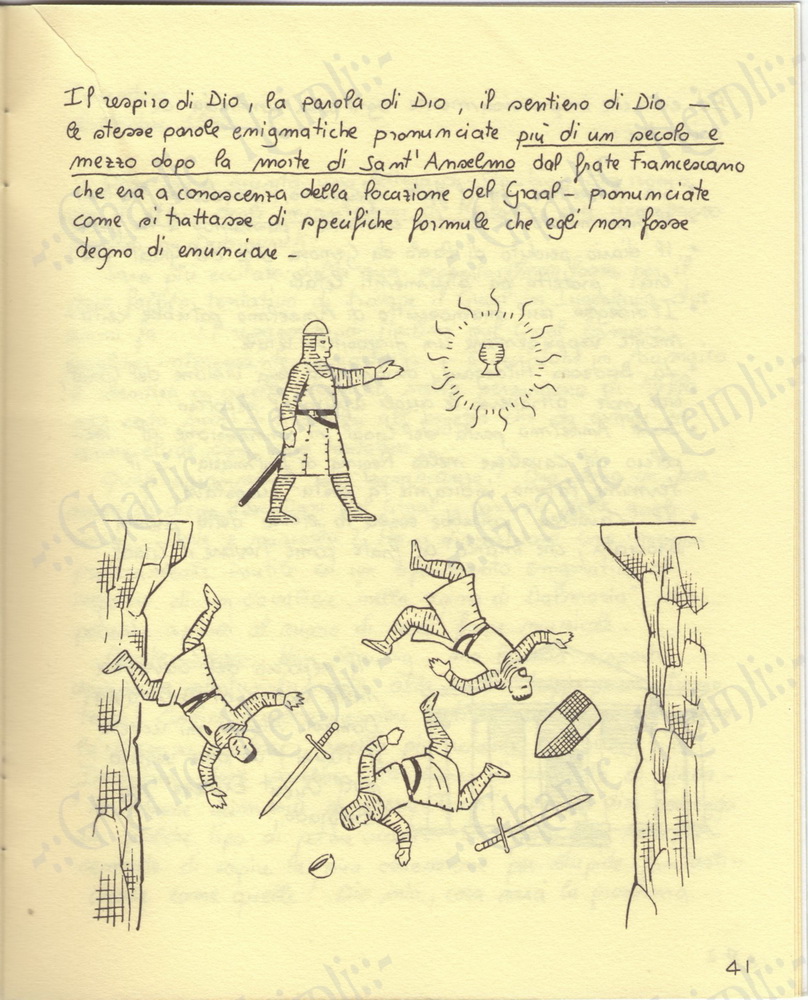 Il respiro di Dio, la parola di Dio, il sentiero di Dio —
le stesse parole enigmatiche pronunciate più di un secolo e
mezzo dopo la morte di Sant'Anselmo dal frate Francescano
che era a conoscenza della locazione del Graal — pronunciate
come si trattasse di specifiche formule che egli non fosse
degno di enunciare —
41
-.::Gharlic Heimli::.-